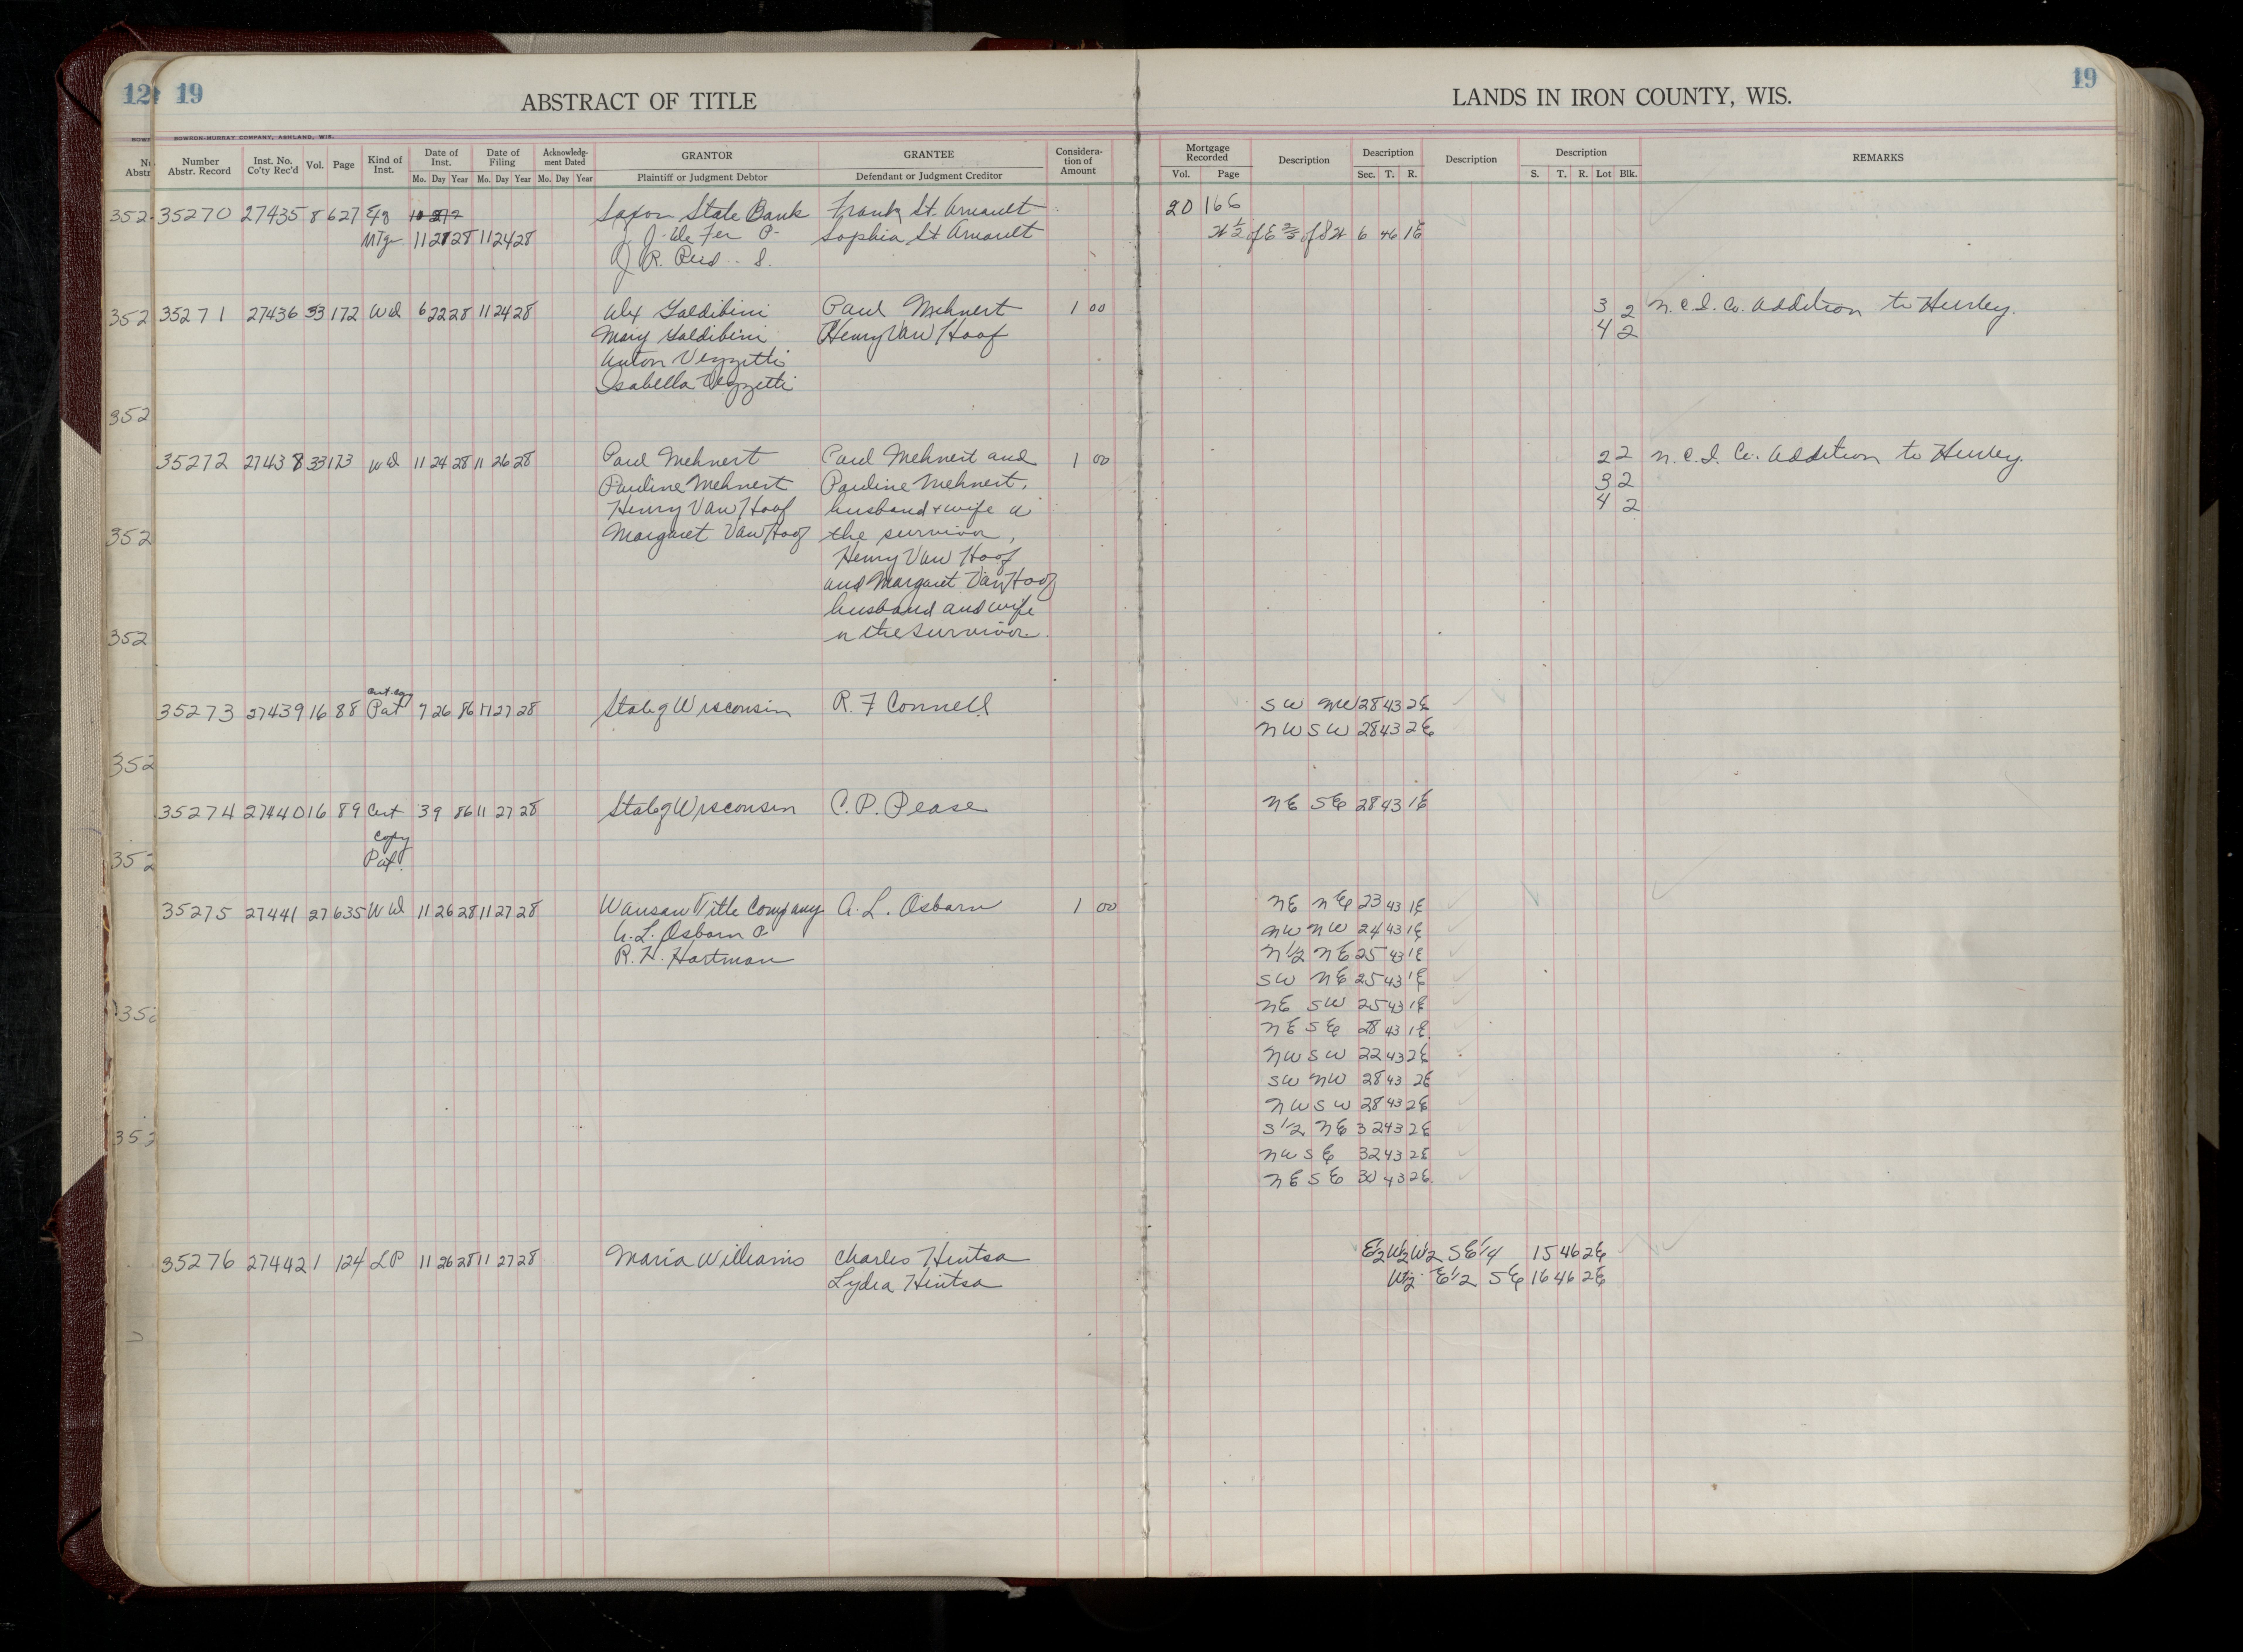 124 19
ABSTRACT OF TITLE
LANDS IN IRON COUNTY, WIS.
19
BOWRON-MURRAY COMPANY, ASHLAND, WIS.
Number Abstr. Record Inst. No. Co'ty Rec'd Vol. Page Kind of Inst. Date of Inst. Date of Filing Acknowledg-ment Dated GRANTOR GRANTEE Considera-tion of Amount Mortgage Recorded Description Description Description Description REMARKS
Mo. Day Year Mo. Day Year Mo. Day Year Plaintiff or Judgment Debtor Defendant or Judgment Creditor Vol. Page Sec. T. R. S. T. R. Lot Blk.
352 35270 27435 8 627 Saxon State Bank Frank St. Arnault 20 166
Mtge 11 21 28 11 24 28 Sophia St Arnault 6 46 1E
J. R.
352 35271 27436 33 172 Wd 6 22 28 11 24 28 Alex Galdibini Paul Mehnert 1 00 3 2 N.C.I. Co. Addition to Hurley.
Mary Galdibini Henry Van Hoof 4 2
Anton Vezzetti
Isabella Vezzetti
352
35272 27438 33 173 Wd 11 24 28 11 26 28 Paul Mehnert Paul Mehnert and 1 00 2 2 N.C.I. Co. Addition to Hurley.
Pauline Mehnert Pauline Mehnert, 3 2
Henry Van Hoof husband & wife or 4 2
352 Margaret Van Hoof the survivor,
Henry Van Hoof
and Margaret Van Hoof
husband and wife
352 or the survivor.
Cert. Copy
35273 27439 16 88 Pat 7 26 86 11 27 28 State of Wisconsin R. F Connell SW NW 28 43 2E
NW SW 28 43 2E
352
35274 27440 16 89 Cert 3 9 86 11 27 28 State of Wisconsin C. P. Pease NE SE 28 43 1E
Copy
352 Pat.
35275 27441 27 635 Wd 11 26 28 11 27 28 Wausau Title Company A. L. Osborn 1 00 NE NE 23 43 1E
A. L. Osborn P NW NW 24 43 1E
R. H. Hartman N1/2 NE 25 43 1E
SW NE 25 43 1E
NE SW 25 43 1E
NE SE 28 43 1E
NW SW 22 43 2E
SW NW 28 43 2E
NW SW 28 43 2E
S1/2 NE 32 43 2E
NW SE 32 43 2E
NE SE 30 43 2E
35276 27442 1 124 LP 11 26 28 11 27 28 Maria Williams Charles Hintsa E1/2 W1/2 W1/2 SE1/4 15 46 2E
Lydia Hintsa W1/2 E1/2 SE 16 46 2E